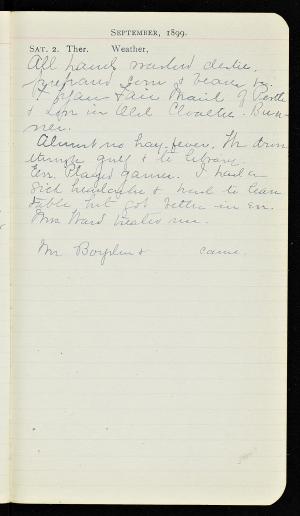 SEPTEMBER, 1899.
SAT. 2. Ther. Weather,
All hands washed dishes,
prepared corn & beans &c.
Fair Maid of Perth
& in Old Cloaths. Bun-
ner.
Almost no hay-fever. Mr
& to library.
Eve. Played games. I had a
sick headache & had to leave
table, but got better in ev.
Mrs Ward treated me.
Mr Boynton & came.